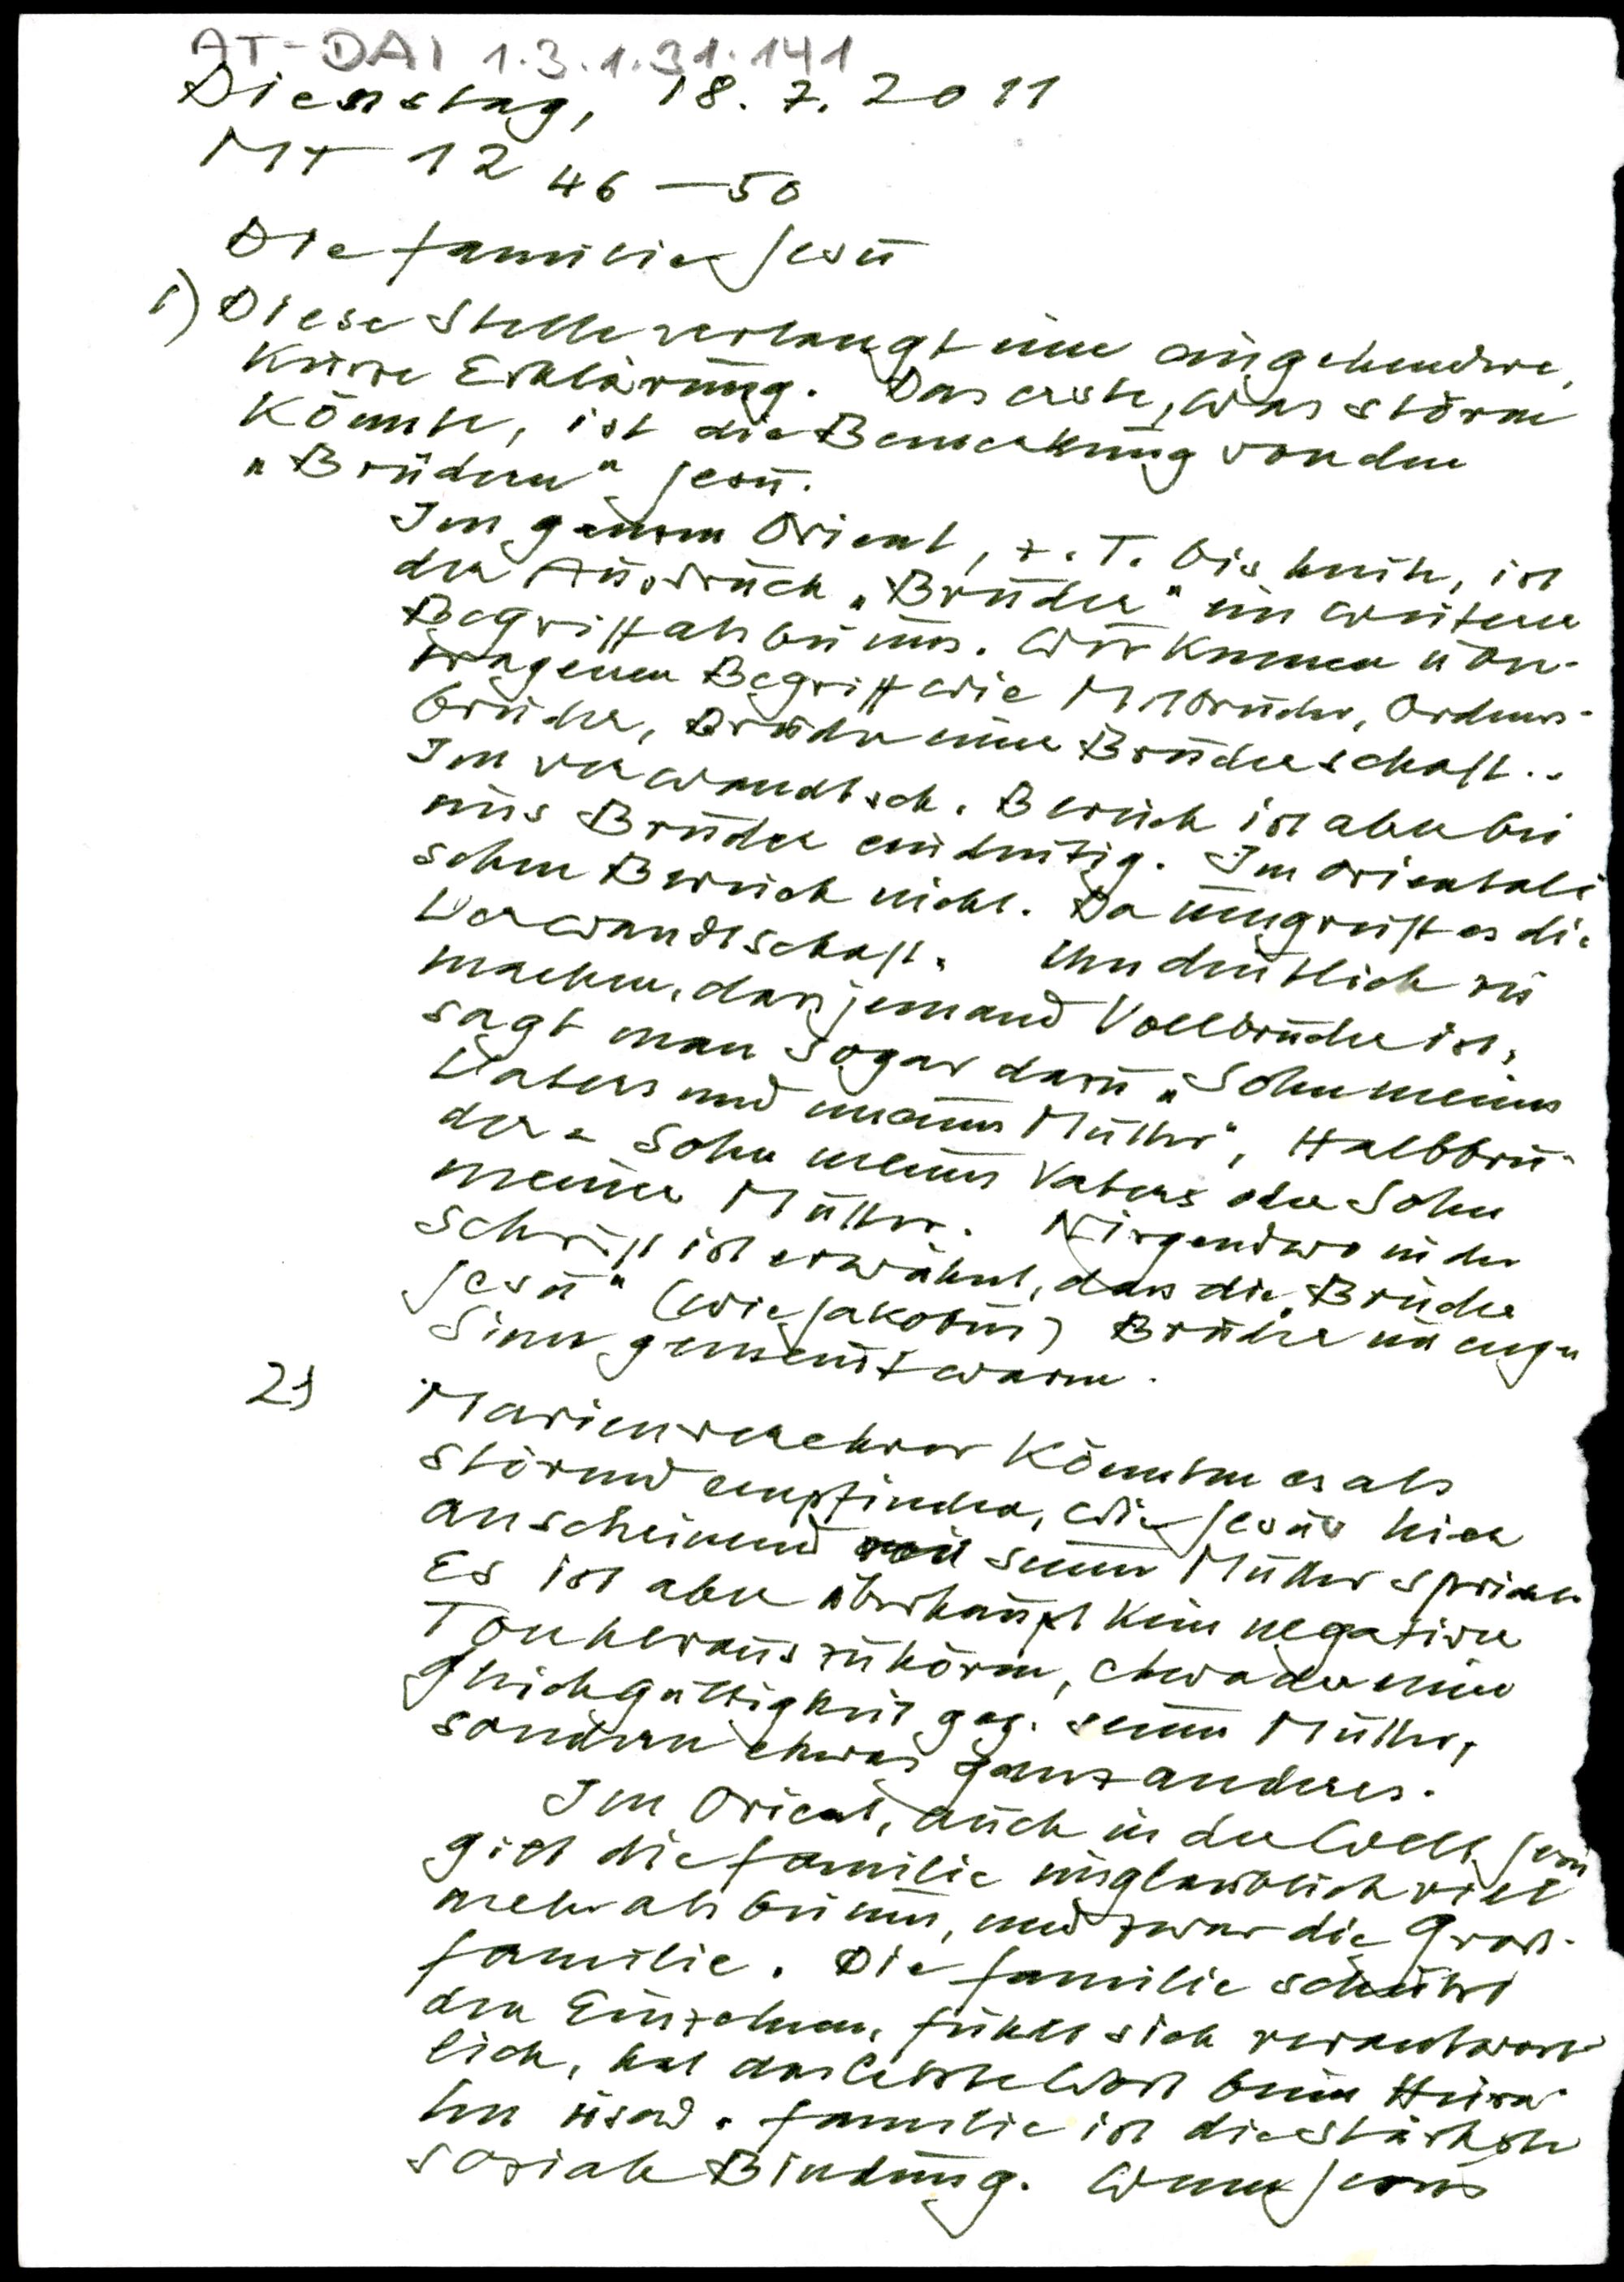 AT-DAI 1.3.1.31.141
Dienstag, 18. 7. 2011
MT 12 46 – 50
Die Familie Jesu
1) Diese Stelle verlangt eine eingehendere,
kurze Erklärung. Das erste, was stören
könnte, ist die Bemerkung von den
"Brüdern" Jesu.
Im ganzen Orient, z. T. bis heute, ist
der Ausdruck "Bruder" ein weiterer
Begriff als bei uns. Wir kennen übertragenen
Begriff wie Mitbruder, Ordens-
bruder, Bruder einer Bruderschaft..
Im verwandtsch. Bereich ist aber bei
uns Bruder eindeutig. Im orientali
schen Bereich nicht. Da umgreift es die
Verwandtschaft. Um deutlich zu
machen, dass jemand Vollbruder ist,
sagt man sogar dazu "Sohn meines
Vaters und meiner Mutter", Halbbru-
der = Sohn meines Vaters oder Sohn
meiner Mutter. Nirgendwo in der
Schrift ist erwähnt, dass die "Brüder
Jesu" (wie Jakobus) Brüder im engen
Sinn gemeint waren.
2) Marienverehrer könnten es als
störend empfinden, wie Jesus hier
anscheinend seiner Mutter spricht.
Es ist aber überhaupt kein negativer
Ton herauszuhören, etwa der einer
Gleichgültigkeit geg. seiner Mutter,
sondern etwas ganz anderes.
Im Orient, auch in der Welt Jesu
gilt die Familie unglaublich viel
mehr als bei uns, und zwar die Gross-
familie. Die Familie schützt
den Einzelnen, fühlt sich verantwort-
lich, hat das letzte Wort beim Heira-
ten usw. Familie ist die stärkste
soziale Bindung. Wenn Jesus